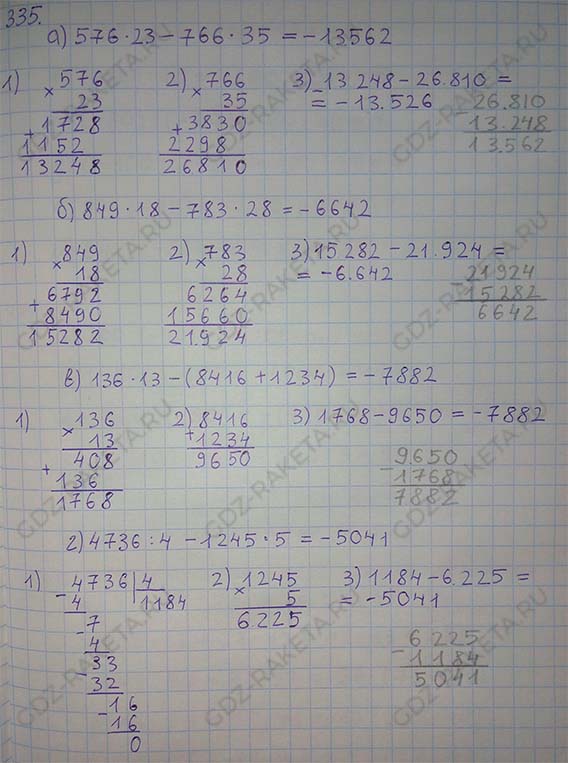 335.
а) 576·23 - 766·35 = -13562
1) × 576
23
+ 1728
1152
13248
2) × 766
35
+ 3830
2298
26810
3) 13.248 - 26.810 =
= -13.526
- 26.810
13.248
13.562
б) 849·18 - 783·28 = -6642
1) × 849
18
+ 6792
8490
15282
2) × 783
28
6264
15660
21.924
3) 15282 - 21.924 =
= -6.642
- 21924
15282
6642
в) 136·13 - (8416 + 1234) = -7882
1) × 136
13
+ 408
136
1768
2) 8416
+ 1234
9650
3) 1768 - 9650 = -7882
- 9650
1768
7882
г) 4736 : 4 - 1245·5 = -5041
1) - 4736 | 4
4 1184
- 7
4
33
- 32
- 16
16
0
2) × 1245
5
6.225
3) 1184 - 6.225 =
= -5041
- 6225
1184
5041
GDZ-RAKETA.RU